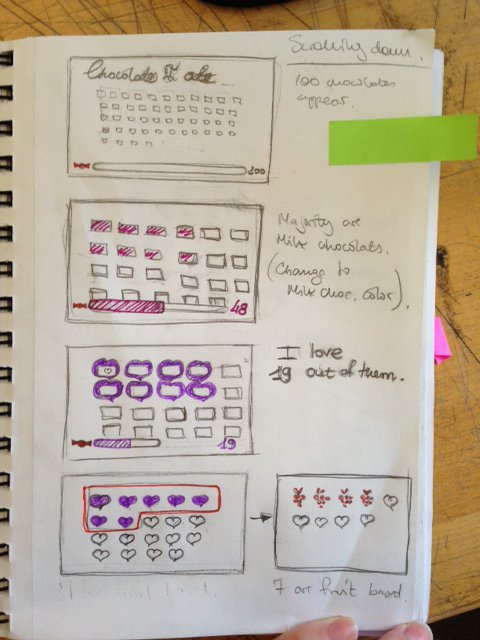 Scrolling down.
Chocolates
100 chocolates
appear.
100
Majority are
Milk chocolats.
(Change to
Milk choc. color).
48
I love
19 out of them.
19
7 are fruit based.